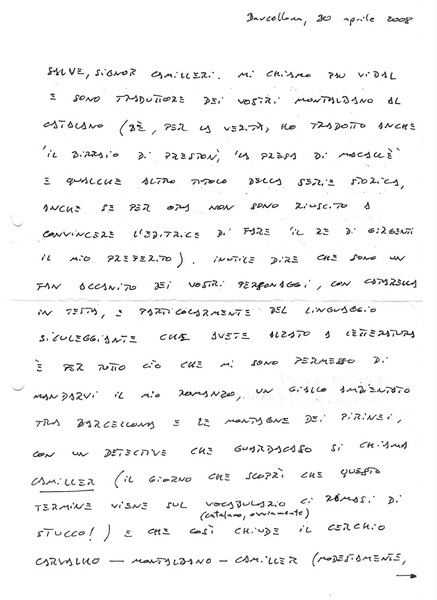 Barcellona, 20 aprile 2008
SALVE, SIGNOR CAMILLERI. MI CHIAMO PAU VIDAL
E SONO TRADUTTORE DEI VOSTRI MONTALBANO AL
CATALANO (BÈ, PER LA VERITÀ, HO TRADOTTO ANCHE
'IL BIRRAIO DI PRESTON', 'LA PRESA DI MACALLÈ'
E QUALCHE ALTRO TITOLO DELLA SERIE STORICA,
ANCHE SE PER ORA NON SONO RIUSCITO A
CONVINCERE L'EDITRICE DI FARE 'IL RE DI GIRGENTI'
IL MIO PREFERITO). INUTILE DIRE CHE SONO UN
FAN ACCANITO DEI VOSTRI PERSONAGGI, CON CATARELLA
IN TESTA, E PARTICOLARMENTE DEL LINGUAGGIO
SICULEGGIANTE CHE AVETE ALZATO A LETTERATURA
È PER TUTTO CIÒ CHE MI SONO PERMESSO DI
MANDARVI IL MIO ROMANZO, UN GIALLO AMBIENTATO
TRA BARCELLONA E LE MONTAGNE DEI PIRINEI,
CON UN DETECTIVE CHE GUARDACASO SI CHIAMA
CAMILLER (IL GIORNO CHE SCOPRÌ CHE QUESTO
TERMINE VIENE SUL VOCABULARIO CI RIMASI DI
(catalano, ovviamente)
STUCCO!) E CHE COSÌ CHIUDE IL CERCHIO
CARVALHO — MONTALBANO — CAMILLER (MODESTAMENTE,
→